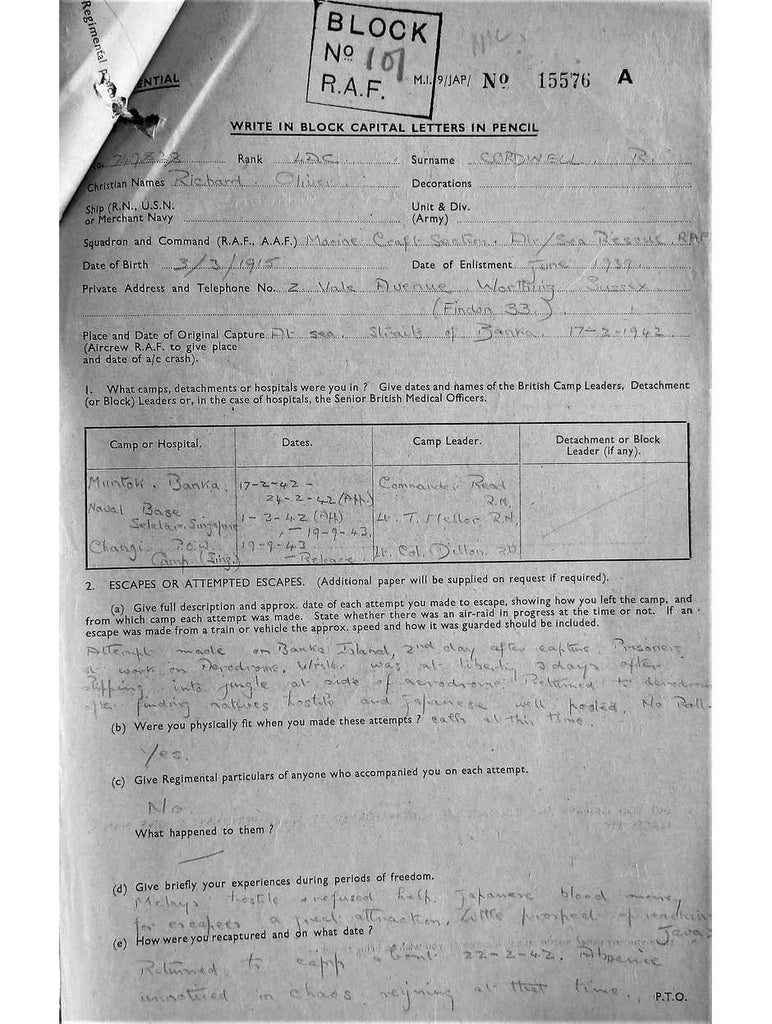 Regimental
BLOCK
Nº 101
R.A.F.
ENTIAL
M.I.9/JAP/ Nº 15576 A
WRITE IN BLOCK CAPITAL LETTERS IN PENCIL
No. 747828 Rank LAC Surname CORDWELL. R.
Christian Names Richard Oliver Decorations
Ship (R.N., U.S.N. or Merchant Navy Unit & Div. (Army)
Squadron and Command (R.A.F., A.A.F.) Marine Craft Section. Air/Sea Rescue. RAF
Date of Birth 3/3/1915 Date of Enlistment June 1939
Private Address and Telephone No. 2 Vale Avenue Worthing Sussex
(Findon 33)
Place and Date of Original Capture At sea. Straits of Banka. 17-2-1942
(Aircrew R.A.F. to give place
and date of a/c crash).
1. What camps, detachments or hospitals were you in ? Give dates and names of the British Camp Leaders, Detachment
(or Block) Leaders or, in the case of hospitals, the Senior British Medical Officers.
Camp or Hospital. Dates. Camp Leader. Detachment or Block
Leader (if any).
Muntok. Banka. 17-2-42 - Commander Read
24-2-42 (Aff.) R.N.
Naval Base 1-3-42 (Aff) Lt. T. Mellor, R.N.
Seletar. Singapore - 19-9-43.
Changi P.O.W. 19-9-43 Lt. Col. Dillon
Camp. (Sing.) - Release
2. ESCAPES OR ATTEMPTED ESCAPES. (Additional paper will be supplied on request if required).
(a) Give full description and approx. date of each attempt you made to escape, showing how you left the camp, and
from which camp each attempt was made. State whether there was an air-raid in progress at the time or not. If an
escape was made from a train or vehicle the approx. speed and how it was guarded should be included.
Attempt made on Banka Island, 2nd day after capture. Prisoners
at work on Aerodrome. Writer was at liberty 3 days after
slipping into jungle at side of aerodrome. Returned to aerodrome
after finding natives hostile and Japanese well posted. No Roll-
(b) Were you physically fit when you made these attempts ? calls at this time.
Yes.
(c) Give Regimental particulars of anyone who accompanied you on each attempt.
No.
What happened to them ?
(d) Give briefly your experiences during periods of freedom.
Malays hostile & refused help. Japanese blood money
for escapees a great attraction. Little prospect of reaching
(e) How were you recaptured and on what date ? Java.
Returned to camp about 22-2-42. Absence
unnoticed in chaos reigning at that time.
P.T.O.